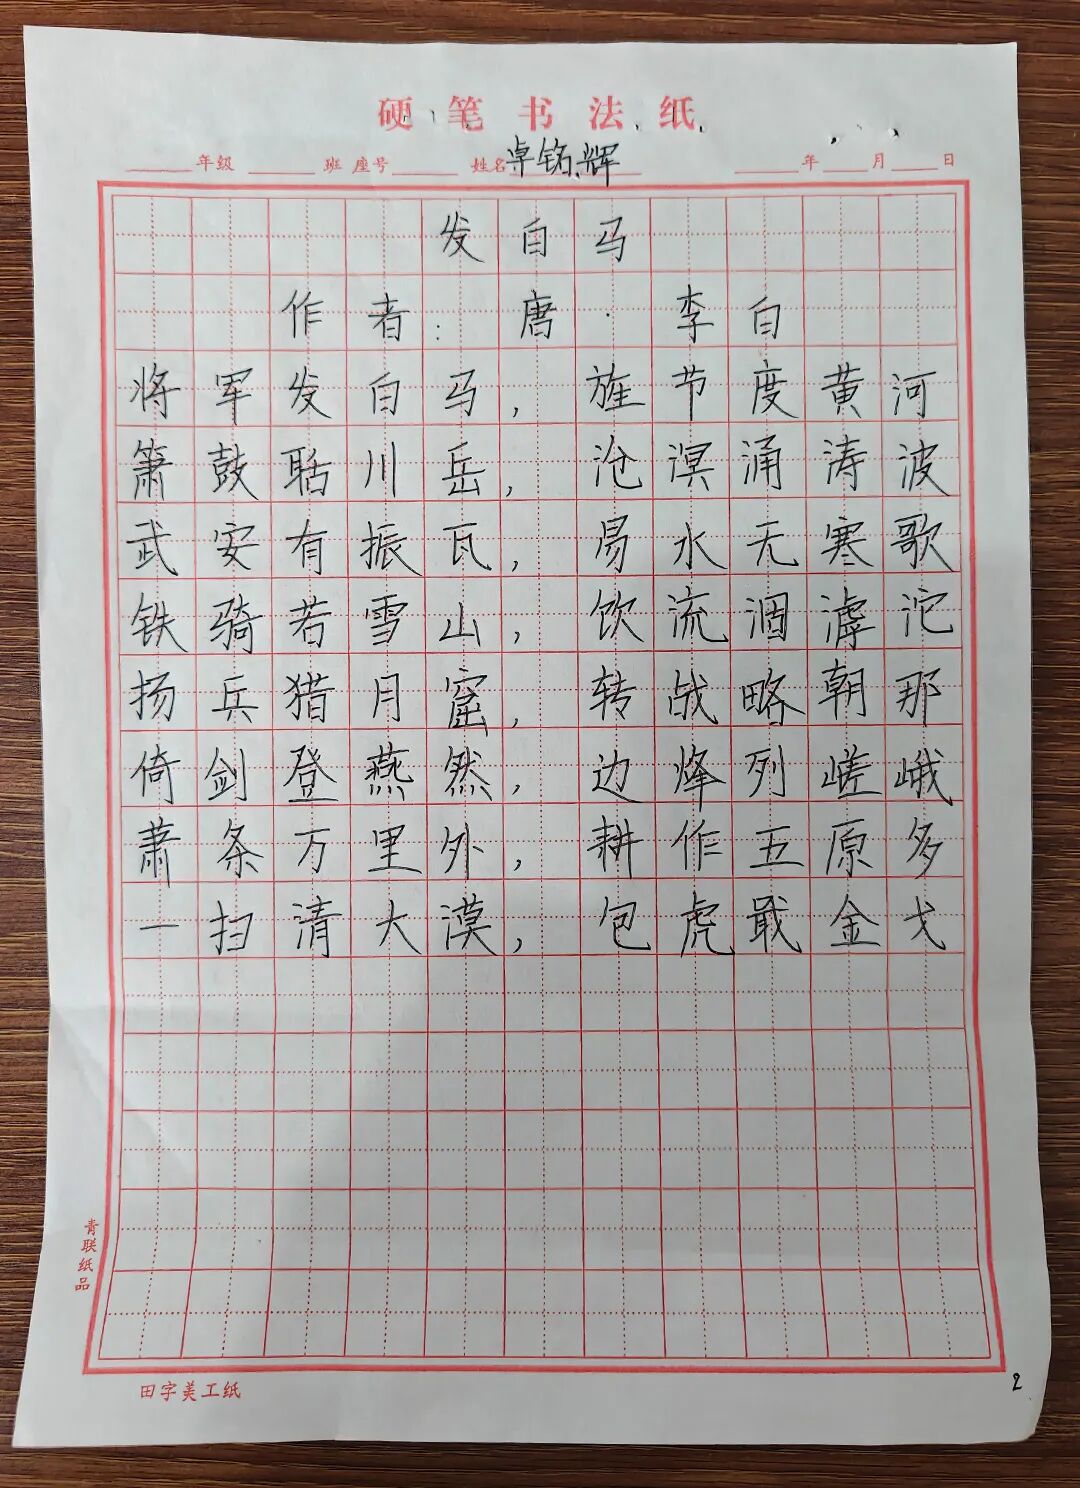 硬笔书法纸
年级 班 座号 姓名 卓铭辉 年 月 日
发白马
作者：唐·李白
将军发白马，旌节度黄河
箫鼓聒川岳，沧溟涌涛波
武安有振瓦，易水无寒歌
铁骑若雪山，饮流涸滹沱
扬兵猎月窟，转战略朝那
倚剑登燕然，边烽列嵯峨
萧条万里外，耕作五原多
一扫清大漠，包虎戢金戈
青联纸品
田字美工纸
2